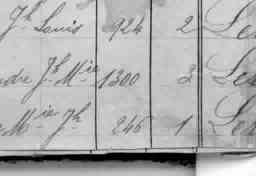 Jh Louis 924 2 Le
dre Jh Mie 1300 3 Le
Mie Jh 246 1 Le